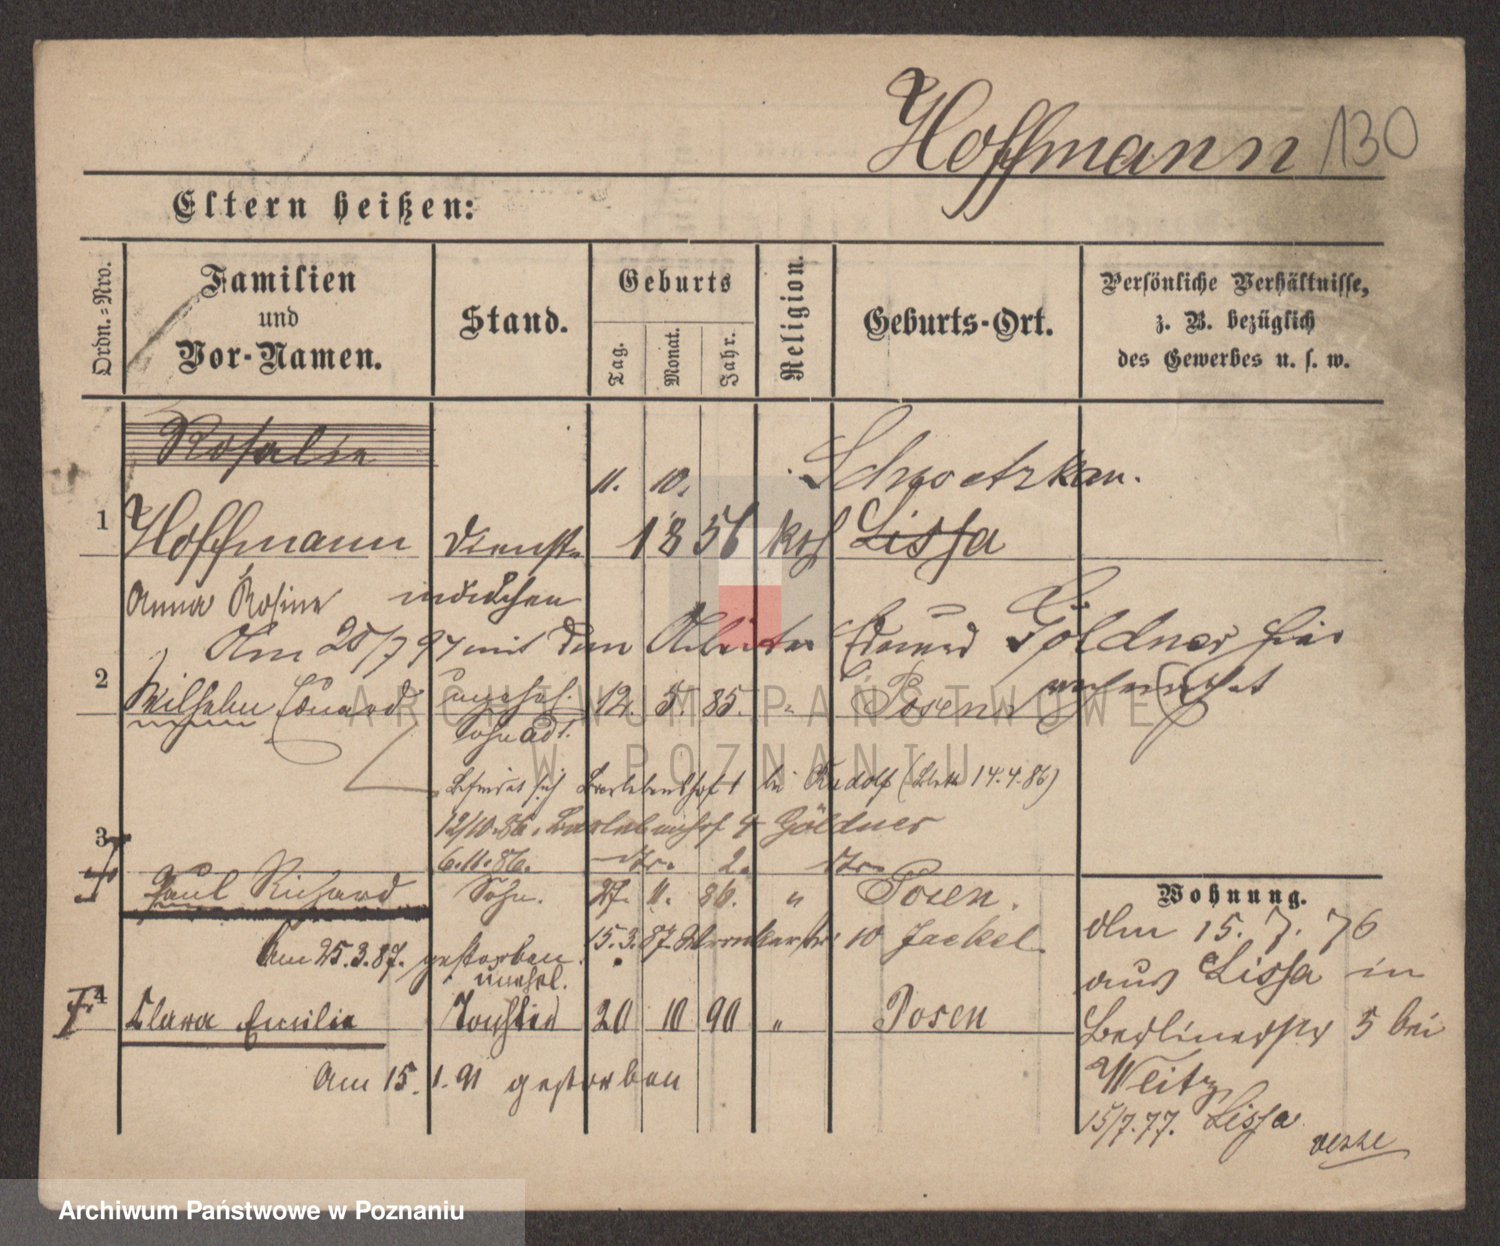 Hoffmann 130
Eltern heißen:
Ordn.=Nro.
Familien
und
Vor-Namen.
Stand.
Geburts
Tag.
Monat.
Jahr.
Religion.
Geburts-Ort.
Persönliche Verhältnisse,
z. B. bezüglich
des Gewerbes u. s. w.
Rosalie
11. 10. Schwetzkau.
1 Hoffmann Dienst= 1856 kath Lissa
Anna Rosine mädchen
Am 20/7 94 mit dem Arbeiter Eduard Göldner hier
verheirathet
2 Wilhelm Eduard unehel. 12. 5. 85. " Posen
Sohn ad 1.
befindet sich bei Rudolf 14.4.86)
12/10.86. 4 Göldner
6.11.86. dto. 2. dto.
3 Paul Richard Sohn. 27. 11. 86. " Posen.
15.3.87. 10 Jaekel
Am 25.3.87. gestorben
unehel.
4 Clara Emilie Tochter 20 10 90 " Posen
Am 15.1.91 gestorben
Wohnung.
Am 15. 7. 76
aus Lissa in
Berlinerstr 5 bei
Weitz
15/7.77. Lissa
ARCHIWUM PAŃSTWOWE
W POZNANIU
Archiwum Państwowe w Poznaniu